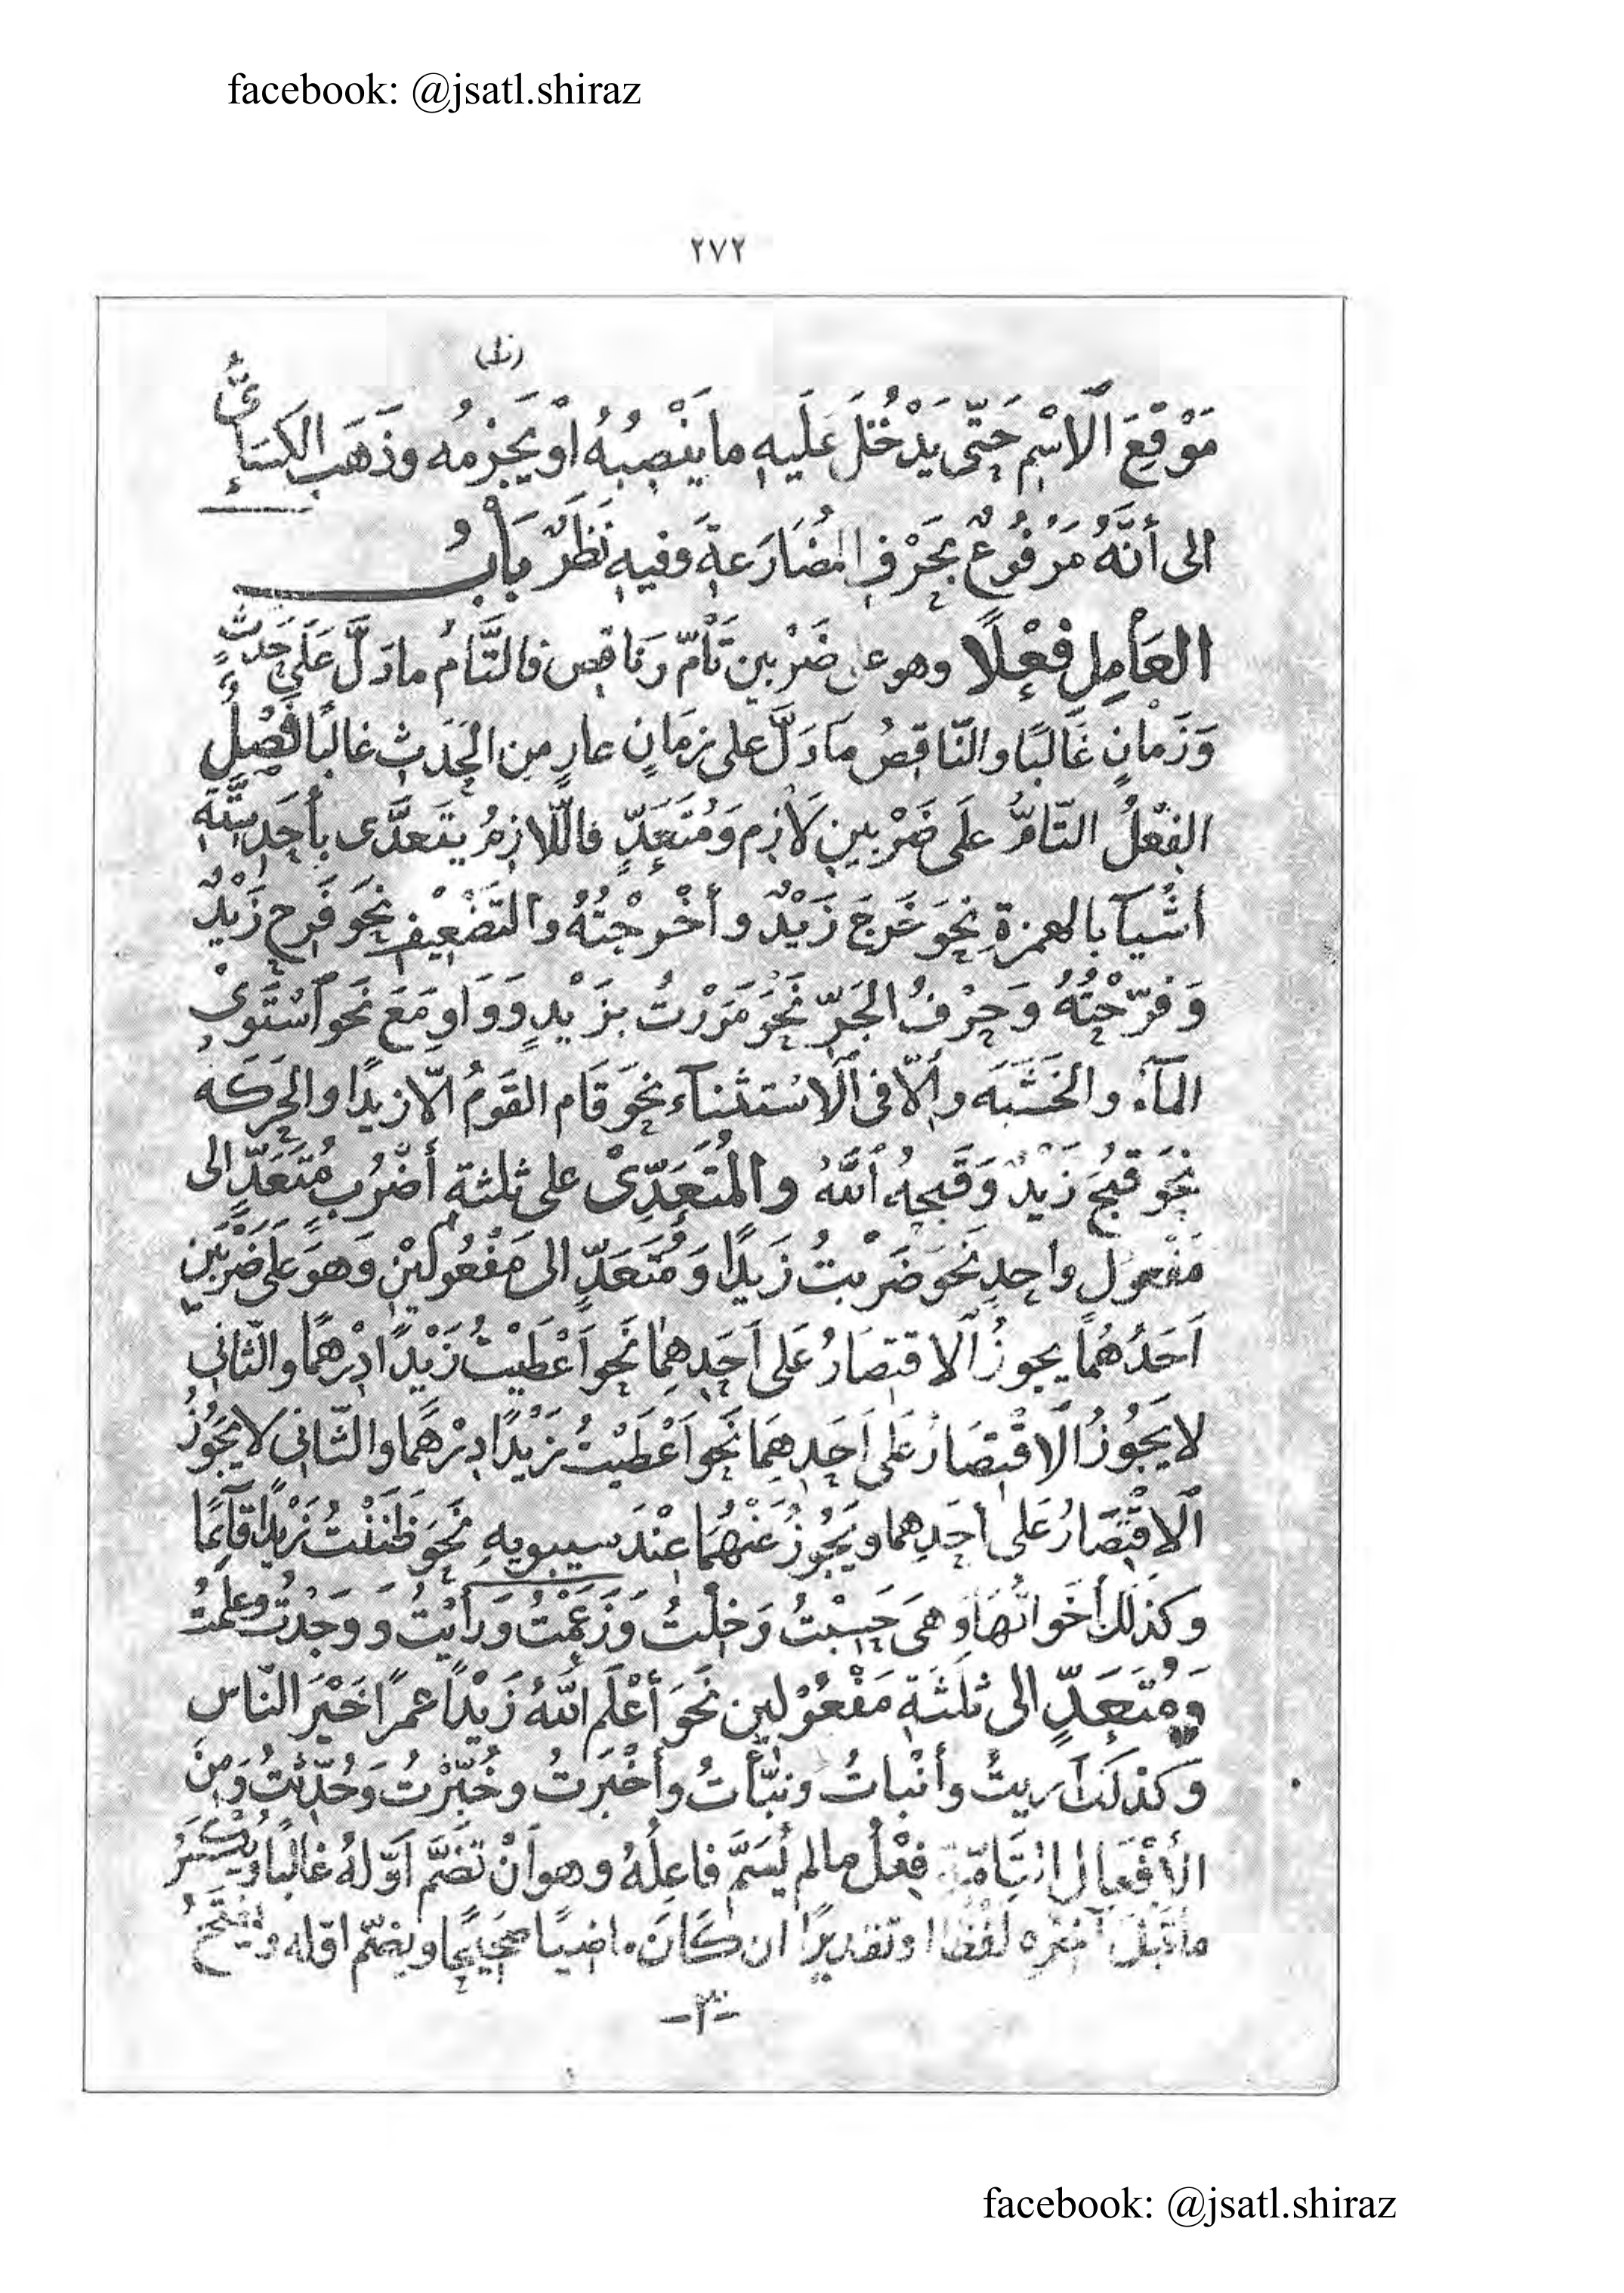 facebook: @jsatl.shiraz
٢٧٢
مَوْقِعَ الاسْمِ حَتّى يَدْخُلَ عَلَيهِ ما يَنْصِبُهُ أوْ يَجْزِمُه وذَهَب الكِسَائِيُّ
الى أنَّهُ مَرْفُوعٌ بِحَرْفِ المُضَارَعةِ وفيهِ نَظَرٌ بابُ
العَامِلِ فِعْلًا وهو على ضَرْبينِ تَامّ وَنَاقِص فالتَّامُ مادَلَّ عَلَى حَدَثٍ
وَزَمانٍ غَالبًا والنّاقِصُ مَادَلَّ على زمَانٍ عارٍ مِن الحَدَثِ غالبًا فَصْلٌ
الفِعْلُ التّامُّ عَلَى ضَرْبينِ لَازِم وَمُتَعَدٍّ فاللّازِمُ يتَعدَّى بأحَدِ سِتَّةِ
أشْيآ بالهمزةِ نحوَ خَرَجَ زَيْدٌ وأخْرجْتُهُ والتَضْعِيف نحوَ فَرِح زَيْدٌ
وَفرّحْتُهُ وَحرْفُ الجَرّ نَحْوَ مَرَرْتُ بزَيْدٍ وَوَاو مَعَ نَحو اسْتَوَى
المآءُ والخَشَبَه وإلّا فى الاسْتثنآء نحوَ قَام القَومُ الّا زيدًا والحَركَه
نحوَ قبُحَ زَيْدٌ وَقَبحهُ اللّٰهُ والمُتعَدِّىْ على ثلثةِ أضْرُبٍ مُتَعَدٍّ الى
مَفْعولٍ واحدٍ نَحوَ ضَرْبتُ زَيدًا وَمُتَعَدٍّ الى مَفْعُولَيْنِ وَهوَ عَلَى ضَرْبَينِ
اَحَدُهُمَا يجوزُ الاقتِصَارُ عَلى اَحَدِهِمَا نَحو اَعْطَيْتُ زَيْدًا دِرْهمًا والثّانِى
لا يَجُوزُ الاقْتِصَارُ عَلى اَحَدِهِمَا نَحو اَعْطَيْتُ زَيْدًا دِرْهَمًا والثّانى لا يَجُوزُ
الاِقْتِصَارُ عَلى أحَدِهما ويَجُوزُ عَنْهُمَا عِنْدَ سيبويهِ نَحَو ظَنَنْتُ زَيْدًا قآئِمًا
وكذلك أخَوَاتُهَا وَهىَ حَسِبْتُ وَخِلْتُ وَزَعَمْتُ وَرَأيْتُ وَوَجَدْتُ وعَلِمْتُ
وَمُتَعَدٍّ الى ثَلثَةِ مَفْعُوْلينِ نَحوَ أعْلَمَ اللّٰهُ زَيْدًا عمرًا خَيْرَ النّاسِ
وَكذلَك اَريتُ وأنْباتُ ونبَّأتُ وأخْبَرتُ وخُبِّرْتُ وَحُدِّثتُ وَمِنَ
الأفْعَالِ التَامّةِ فِعْلُ مالم يُسَمَّ فاعِلُهُ وهوانْ تَضَمَّ اَوّلهُ غالبًا ويُكْسَرُ
ماقَبْلَ آخرِه لَفْظًا اوتقديرًا ان كَانَ ماضيًا صَحِيحًا ويضمّ اوّله ويُفْتَحُ
-٣-
facebook: @jsatl.shiraz